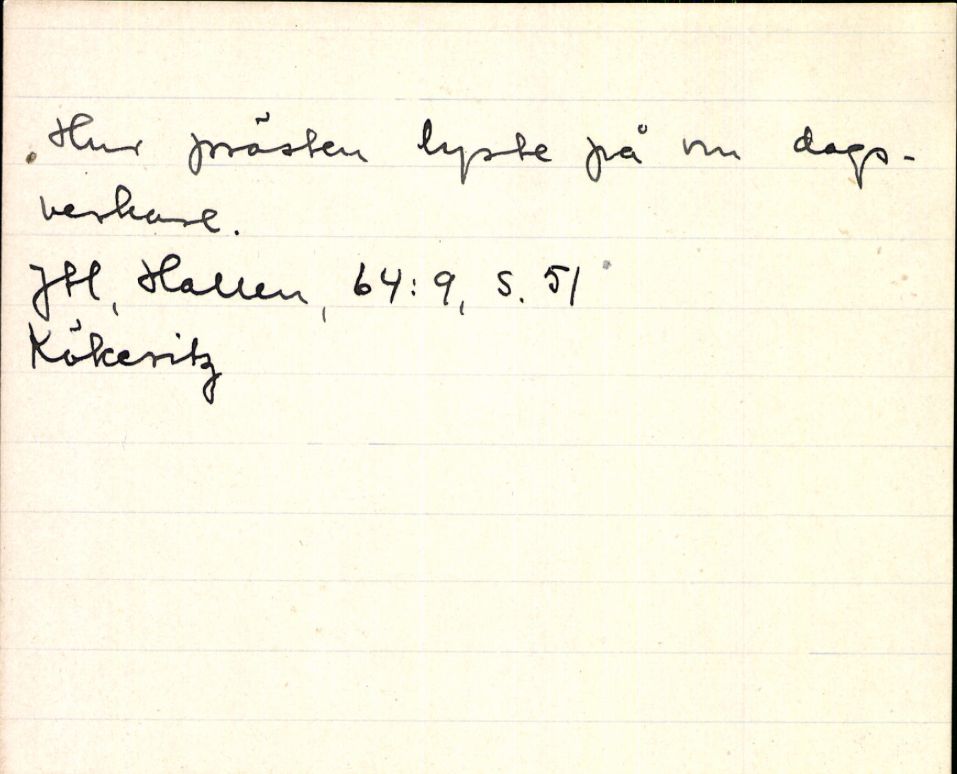 Hur prästen lyste på om dags-
verkare.
Jtl, Hallen, 64:9, S. 51
Kökeritz